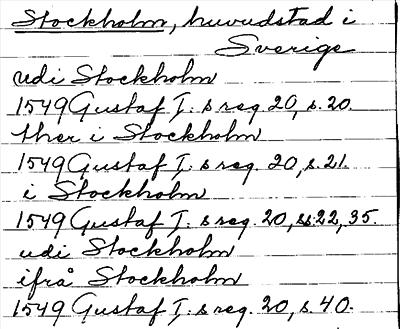 Stockholm, huvudstad i
Sverige
udi Stockholm
1549 Gustaf I. s reg. 20, s. 20.
ther i Stockholm
1549 Gustaf I. s reg. 20, s. 21.
i Stockholm
1549 Gustaf I. s reg. 20, ss. 22, 35.
udi Stockholm
ifrå Stockholm
1549 Gustaf I. s reg. 20, s. 40.